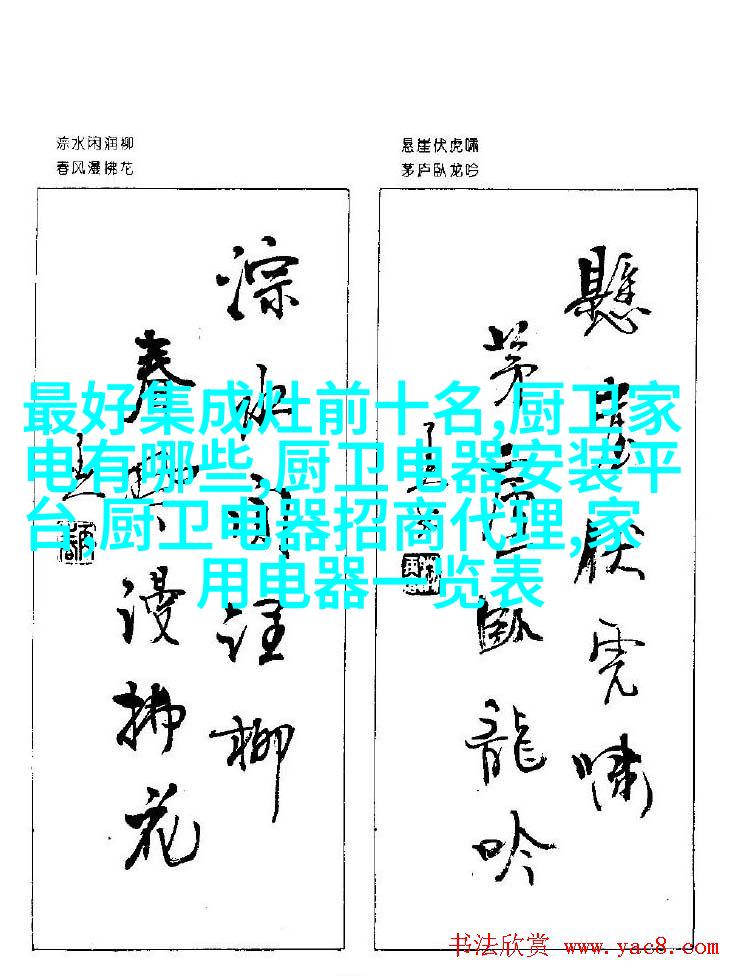 淙水闲润柳
春风漫拂花
悬崖伏虎啸
茅庐卧龙吟
淙水闲
柳
春风漫拂花
懸崖伏虎啸
茅廬臥龍吟
最好集成灶前十名,厨卫家
电有哪些,厨卫电器安装平
台,厨卫电器招商代理,家
用电器一览表
书法欣赏 www.yac8.com